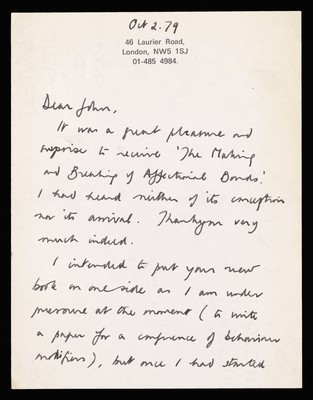 Oct 2. 79
46 Laurier Road,
London, NW5 1SJ
01-485 4984.
Dear John,
It was a great pleasure and
surprise to receive 'The Making
and Breaking of Affectional Bonds'.
I had heard neither of its conception
nor its arrival. Thankyou very
much indeed.
I intended to put your new
book on one side as I am under
pressure at the moment (to write
a paper for a conference of behaviour
modifiers), but once I had started